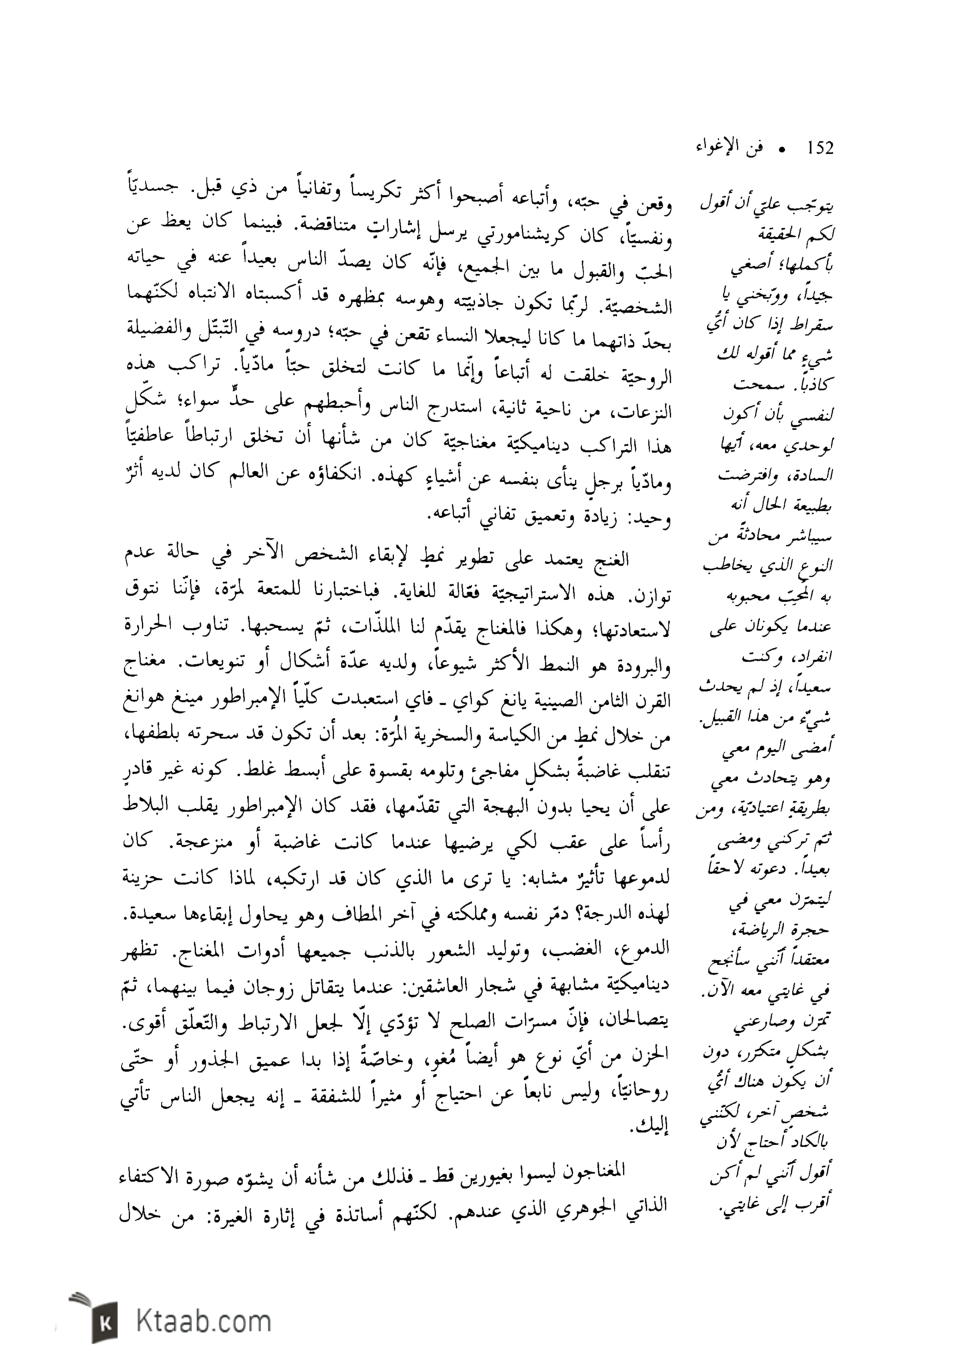 152 • فن الإغواء
وقعن في حبّه، وأتباعه أصبحوا أكثر تكريساً وتفانياً من ذي قبل. جسديّاً
ونفسيّاً، كان كريشنامورتي يرسل إشاراتٍ متناقضة. فبينما كان يعظ عن
الحبّ والقبول ما بين الجميع، فإنّه كان يصدّ الناس بعيداً عنه في حياته
الشخصيّة. لربّما تكون جاذبيّته وهوسه بمظهره قد أكسبتاه الانتباه لكنّهما
بحدّ ذاتهما ما كانا ليجعلا النساء تقعن في حبّه؛ دروسه في التّبتّل والفضيلة
الروحيّة خلقت له أتباعاً وإنّما ما كانت لتخلق حبّاً مادّياً. تراكب هذه
النزعات، من ناحية ثانية، استدرج الناس وأحبطهم على حدٍّ سواء؛ شكّل
هذا التراكب ديناميكيّة مغناجيّة كان من شأنها أن تخلق ارتباطاً عاطفيّاً
ومادّياً برجلٍ ينأى بنفسه عن أشياءٍ كهذه. انكفاؤه عن العالم كان لديه أثرٌ
وحيد: زيادة وتعميق تفاني أتباعه.
الغنج يعتمد على تطوير نمطٍ لإبقاء الشخص الآخر في حالة عدم
توازن. هذه الاستراتيجيّة فعّالة للغاية. فباختبارنا للمتعة لمرّة، فإنّنا نتوق
لاستعادتها؛ وهكذا فالمغناج يقدّم لنا الملذّات، ثمّ يسحبها. تناوب الحرارة
والبرودة هو النمط الأكثر شيوعاً، ولديه عدّة أشكال أو تنويعات. مغناج
القرن الثامن الصينية يانغ كواي ـ فاي استعبدت كلّياً الإمبراطور مينغ هوانغ
من خلال نمطٍ من الكياسة والسخرية المُرّة: بعد أن تكون قد سحرته بلطفها،
تنقلب غاضبةً بشكلٍ مفاجئ وتلومه بقسوة على أبسط غلط. كونه غير قادرٍ
على أن يحيا بدون البهجة التي تقدّمها، فقد كان الإمبراطور يقلب البلاط
رأساً على عقب لكي يرضيها عندما كانت غاضبة أو منزعجة. كان
لدموعها تأثيرٌ مشابه: يا ترى ما الذي كان قد ارتكبه، لماذا كانت حزينة
لهذه الدرجة؟ دمّر نفسه ومملكته في آخر المطاف وهو يحاول إبقاءها سعيدة.
الدموع، الغضب، وتوليد الشعور بالذنب جميعها أدوات المغناج. تظهر
ديناميكيّة مشابهة في شجار العاشقين: عندما يتقاتل زوجان فيما بينهما، ثمّ
يتصالحان، فإنّ مسرّات الصلح لا تؤدّي إلّا لجعل الارتباط والتّعلّق أقوى.
الحزن من أيّ نوع هو أيضاً مُغوٍ، وخاصّةً إذا بدا عميق الجذور أو حتّى
روحانيّاً، وليس نابعاً عن احتياج أو مثيراً للشفقة ـ إنه يجعل الناس تأتي
إليك.
المغناجون ليسوا بغيورين قط ـ فذلك من شأنه أن يشوّه صورة الاكتفاء
الذاتي الجوهري الذي عندهم. لكنّهم أساتذة في إثارة الغيرة: من خلال
يتوجّب عليّ أن أقول
لكم الحقيقة
بأكملها؛ أصغي
جيّداً، ووبّخني يا
سقراط إذا كان أيُّ
شيءٍ مما أقوله لك
كاذباً. سمحت
لنفسي بأن أكون
لوحدي معه، أيّها
السادة، وافترضت
بطبيعة الحال أنه
سيباشر محادثةً من
النوع الذي يخاطب
به المُحِبّ محبوبه
عندما يكونان على
انفراد، وكنت
سعيداً، إذ لم يحدث
شيءٌ من هذا القبيل.
أمضى اليوم معي
وهو يتحادث معي
بطريقةٍ اعتياديّة، ومن
ثمّ تركني ومضى
بعيداً. دعوته لاحقاً
ليتمرّن معي في
حجرة الرياضة،
معتقداً أنّني سأنجح
في غايتي معه الآن.
تمرّن وصارعني
بشكلٍ متكرّر، دون
أن يكون هناك أيُّ
شخصٍ آخر، لكنّني
بالكاد أحتاج لأن
أقول أنّني لم أكن
أقرب إلى غايتي.
Ktaab.com